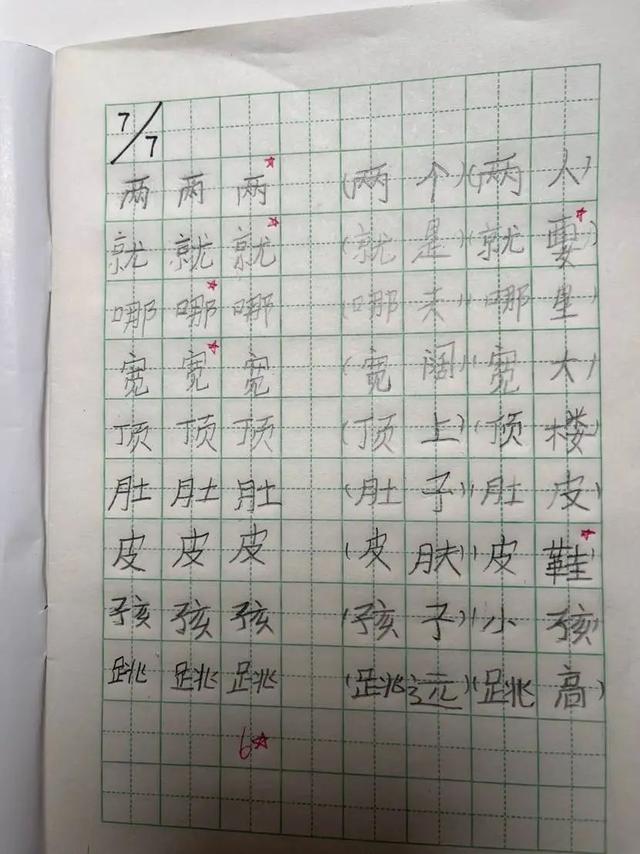 7/7
两 两 两 (两个)(两人)
就 就 就 (就是)(就要)
哪 哪 哪 (哪来)(哪里)
宽 宽 宽 (宽阔)(宽大)
顶 顶 顶 (顶上)(顶楼)
肚 肚 肚 (肚子)(肚皮)
皮 皮 皮 (皮肤)(皮鞋)
孩 孩 孩 (孩子)(小孩)
跳 跳 跳 (跳远)(跳高)
6☆